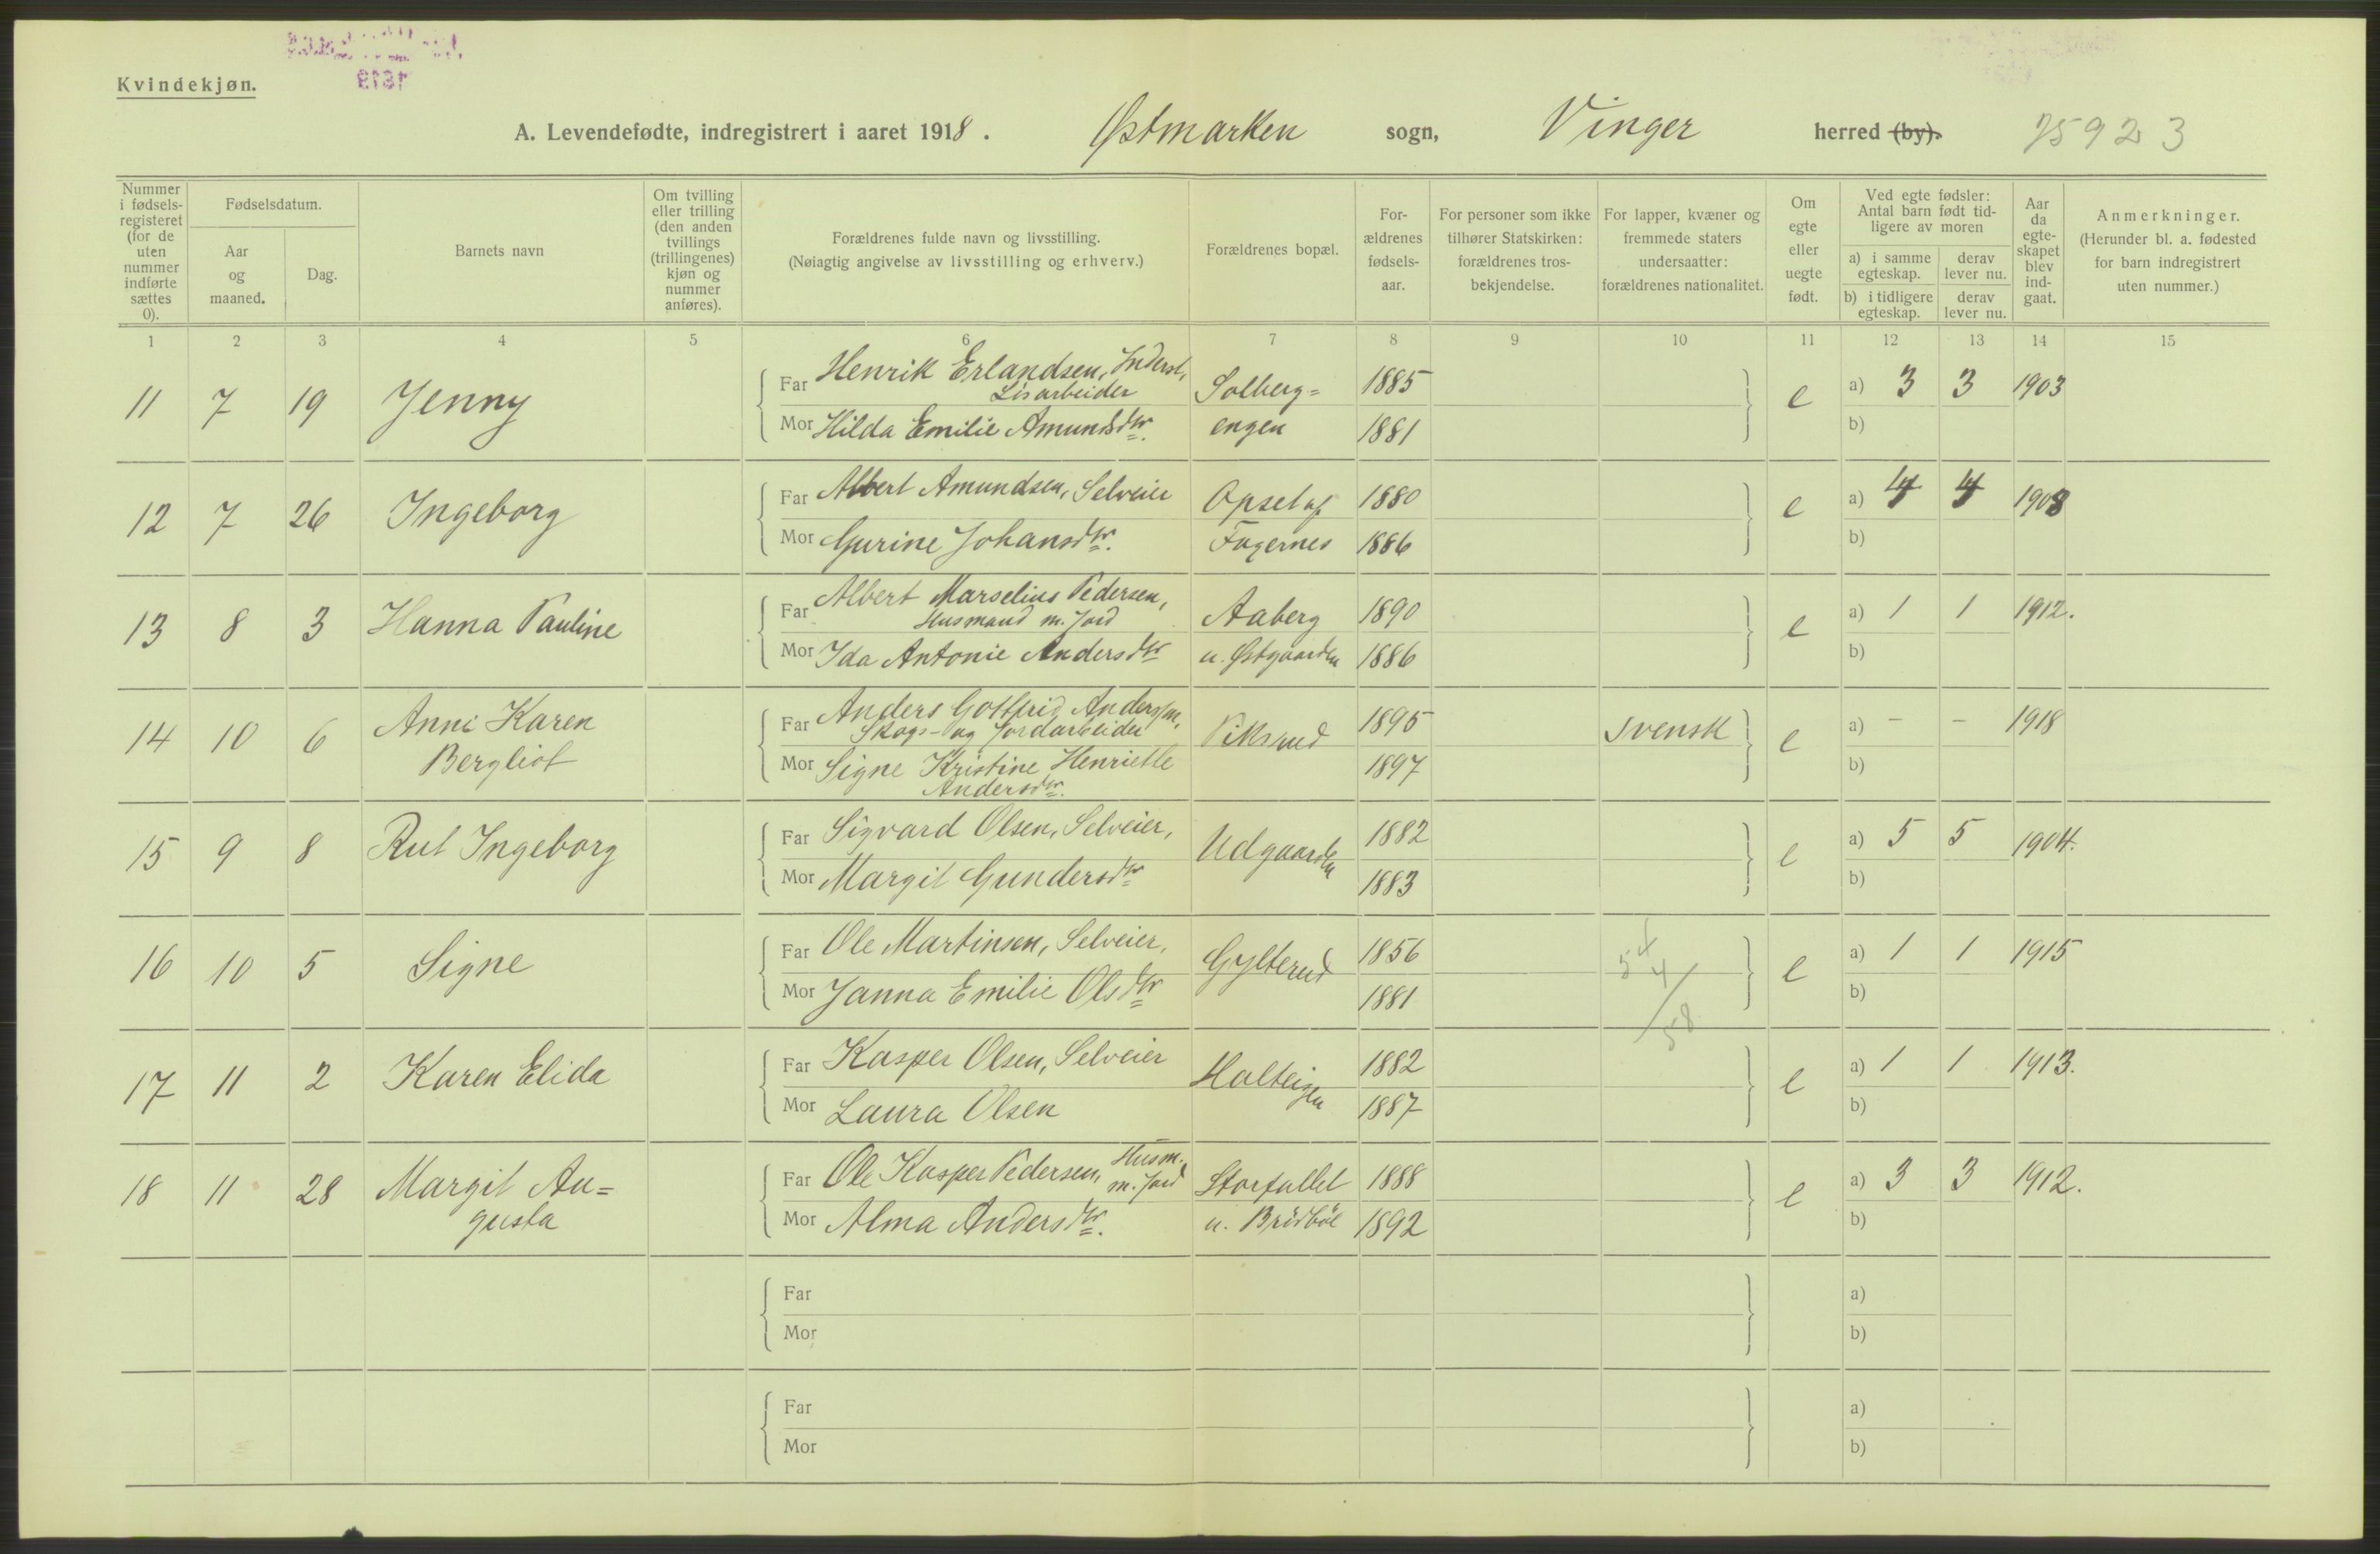 Kvindekjøn.
1919
A. Levendefødte, indregistrert i aaret 1918. Østmarken sogn, Vinger herred (by). 75923
Nummer i fødsels-registeret (for de uten nummer indførte sættes 0).
Fødselsdatum.
Aar og maaned.
Dag.
Barnets navn
Om tvilling eller trilling (den anden tvillings (trillingenes) kjøn og nummer anføres).
Forældrenes fulde navn og livsstilling.
(Nøiagtig angivelse av livsstilling og erhverv.)
Forældrenes bopæl.
For-ældrenes fødsels-aar.
For personer som ikke tilhører Statskirken: forældrenes tros-bekjendelse.
For lapper, kvæner og fremmede staters undersaatter: forældrenes nationalitet.
Om egte eller uegte født.
Ved egte fødsler: Antal barn født tid-ligere av moren
a) i samme egteskap.
derav lever nu.
b) i tidligere egteskap.
derav lever nu.
Aar da egte-skapet blev ind-gaat.
Anmerkninger.
(Herunder bl. a. fødested for barn indregistrert uten nummer.)
1 2 3 4 5 6 7 8 9 10 11 12 13 14 15
11 7 19 Jenny Far Henrik Erlandsen, Inderst, Løsarbeider Solberg= 1885 e a) 3 3 1903
Mor Hilda Emilie Amundsdtr. engen 1881 b)
12 7 26 Ingeborg Far Albert Amundsen, Selveier Opset af 1880 e a) 4 4 1908
Mor Gurine Johansdtr. Fagernes 1886 b)
13 8 3 Hanna Pauline Far Albert Marselius Pedersen, Husmand m. Jord Aaberg 1890 e a) 1 1 1912.
Mor Ida Antonie Andersdtr u. Østgaarden 1886 b)
14 10 6 Anni Karen Far Anders Gottfrid Andersson, Skogs- og Jordarbeider Viksrud 1895 Svensk e a) - - 1918
Bergliot Mor Signe Kristine Henriette Andersdtr. 1897 b)
15 9 8 Rut Ingeborg Far Sigvard Olsen, Selveier, Udgaarden 1882 e a) 5 5 1904.
Mor Margit Gundersdtr 1883 b)
16 10 5 Signe Far Ole Martinsen, Selveier, Gylterud 1856 e a) 1 1 1915
Mor Janna Emilie Olsdtr 1881 b)
58
17 11 2 Karen Elida Far Kasper Olsen, Selveier 1882 e a) 1 1 1913.
Mor Laura Olsen 1887 b)
18 11 28 Margit Au= Far Ole Kasper Pedersen, Husm. m. Jord Storfallet 1888 e a) 3 3 1912.
gusta Mor Alma Andersdtr. u. Brødbøl 1892 b)
Far a)
Mor b)
Far a)
Mor b)